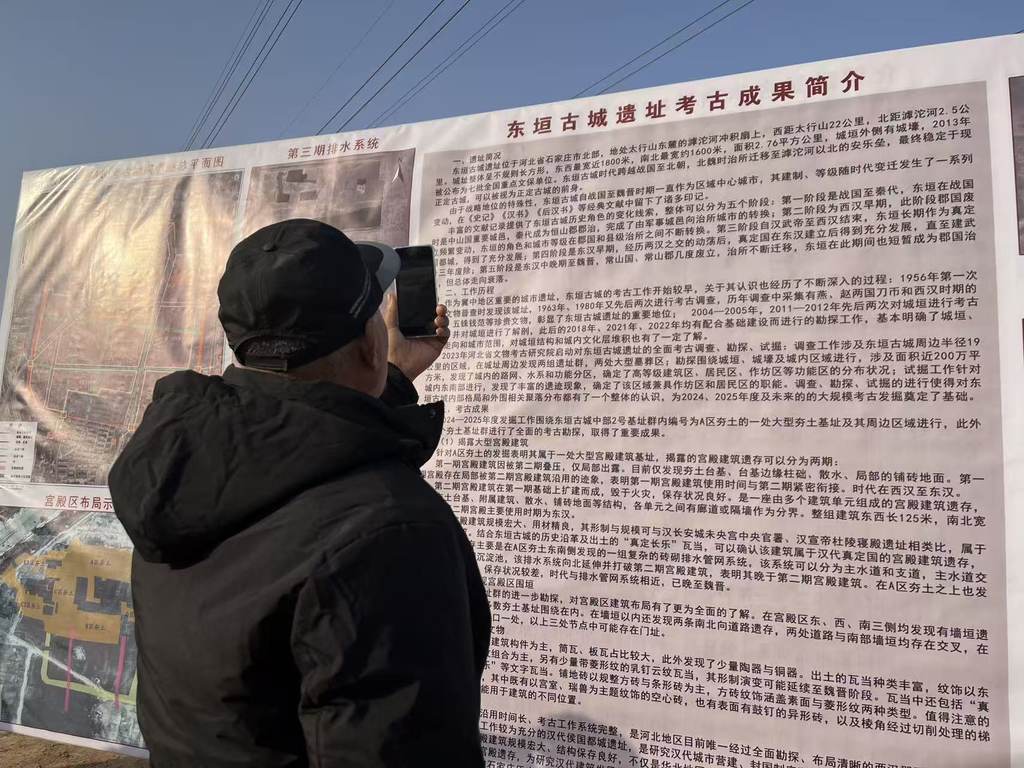 平面图
第三期排水系统
宫殿区布局示
东垣古城遗址考古成果简介
一、遗址简况
东垣古城遗址位于河北省石家庄市北部，地处太行山东麓的滹沱河冲积扇上，西距太行山22公里，北距滹沱河2.5公
里。城址整体呈不规则长方形，东西最宽近1800米，南北最宽约1600米，面积2.76平方公里，城垣外侧有城壕，2013年
被公布为七批全国重点文保单位。东垣古城时代跨越战国至北朝，北魏时治所迁移至滹沱河以北的安乐垒，最终稳定于现
正定古城，可以被视为正定古城的前身。
由于战略地位的特殊性，东垣古城自战国至魏晋时期一直作为区域中心城市，其建制、等级随时代变迁发生了一系列
变动，在《史记》《汉书》《后汉书》等经典文献中留下了诸多印记。
丰富的文献记录提供了东垣古城历史角色的变化线索，整体可以分为五个阶段：第一阶段是战国至秦代，东垣在战国
时是中山国重要城邑，秦代成为恒山郡郡治，完成了由军事城邑向治所城市的转换；第二阶段为西汉早期，此阶段郡国废
立频繁变动，东垣的角色和城市等级在郡国和县级治所之间不断转换。第三阶段自汉武帝至西汉结束，东垣长期作为真定
国都城，得到了充分发展；第四阶段是东汉早期，经历两汉之交的动荡后，真定国在东汉建立后得到充分发展，直至建武
三年废除；第五阶段是东汉中晚期至魏晋，常山国、常山郡几度废立，治所不断迁移，东垣在此期间也短暂成为郡国治
，但总体走向衰落。
二、工作历程
作为冀中地区重要的城市遗址，东垣古城的考古工作开始较早，关于其认识也经历了不断深入的过程：1956年第一次
文物普查时发现该城址，1963年、1980年又先后两次进行考古调查，历年调查中采集有燕、赵两国刀币和西汉时期的
五铢钱范等珍贵文物，彰显了东垣古城遗址的重要地位； 2004—2005年，2011—2012年先后两次对城垣进行考古
并对城垣进行了解剖，此后的2018年、2021年、2022年均有配合基础建设而进行的勘探工作，基本明确了城垣、
向和城市范围，对城垣结构和城内文化层堆积也有了一定了解。
2023年河北省文物考古研究院启动对东垣古城遗址的全面考古调查、勘探、试掘：调查工作涉及东垣古城周边半径19
公里的区域，在城址周边发现两组遗址群，两处大型墓葬区；勘探围绕城垣、城壕及城内区域进行，涉及面积近200万平
方米，发现了城内的路网、水系和功能分区，确定了高等级建筑区、居民区、作坊区等功能区的分布状况；试掘工作针对
城内东南部进行，发现了丰富的遗迹现象，确定了该区域兼具作坊区和居民区的职能。调查、勘探、试掘的进行使得对东
垣古城内部格局和外围相关聚落分布都有了一个整体的认识，为2024、2025年度及未来的大规模考古发掘奠定了基础。
、考古成果
2024—2025年度发掘工作围绕东垣古城中部2号基址群内编号为A区夯土的一处大型夯土基址及其周边区域进行，此外
夯土基址群进行了全面的考古勘探，取得了重要成果。
（1）揭露大型宫殿建筑
针对A区夯土的发掘表明其属于一处大型宫殿建筑基址，揭露的宫殿建筑遗存可以分为两期：
第一期宫殿建筑因被第二期叠压，仅局部出露。目前仅发现夯土台基、台基边缘柱础、散水、局部的铺砖地面。第一
宫殿存在局部被第二期宫殿建筑沿用的迹象，表明第一期宫殿建筑使用时间与第二期紧密衔接。时代在西汉至东汉。
第二期宫殿建筑在第一期基础上扩建而成，毁于火灾，保存状况良好。是一座由多个建筑单元组成的宫殿建筑遗存，
夯土台基、附属建筑、散水、铺砖地面等结构，各单元之间有廊道或隔墙作为分界。整组建筑东西长125米，南北宽
二期宫殿主要使用时期为东汉。
殿建筑规模宏大、用材精良，其形制与规模可与汉长安城未央宫中央官署、汉宣帝杜陵寝殿遗址相类比，属于
。结合东垣古城的历史沿革及出土的“真定长乐”瓦当，可以确认该建筑属于汉代真定国的宫殿建筑遗存，
主要是在A区夯土东南侧发现的一组复杂的砖砌排水管网系统，该系统可以分为主水道和支道，主水道交
沉淀池，该排水系统向北延伸并打破第二期宫殿建筑，表明其晚于第二期宫殿建筑。在A区夯土之上也发
，保存状况较差，时代与排水管网系统相近，已晚至魏晋。
宫殿区围垣
址群的进一步勘探，对宫殿区建筑布局有了更为全面的了解。在宫殿区东、西、南三侧均发现有墙垣遗
数夯土基址围绕在内。在墙垣以内还发现两条南北向道路遗存，两处道路与南部墙垣均存在交叉，在
口一处，以上三处节点中可能存在门址。
文物
建筑构件为主，筒瓦、板瓦占比较大，此外发现了少量陶器与铜器。出土的瓦当种类丰富，纹饰以东
组合为主，另有少量带菱形纹的乳钉云纹瓦当，其形制演变可能延续至魏晋阶段。瓦当中还包括“真
乐”等文字瓦当。铺地砖以规整方砖与条形砖为主，方砖纹饰涵盖素面与菱形纹两种类型。值得注意的
，其中既有以宫室、瑞兽为主题纹饰的空心砖，也有表面有鼓钉的异形砖，以及棱角经过切削处理的梯
能用于建筑的不同位置。
沿用时间长、考古工作系统完整，是河北地区目前唯一经过全面勘探、布局清晰的
工作较为充分的汉代侯国都城遗址，是研究汉代城市营建、封国制度
建筑规模宏大、结构保存良好，不仅是